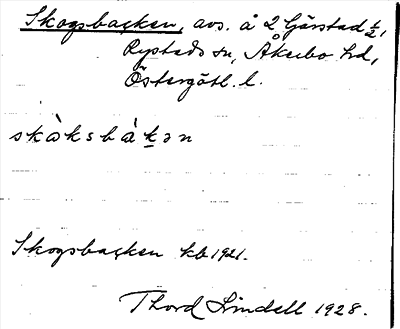 Skogsbacken, avs. å 2 Gärstad ½,
Rystads sn, Åkerbo hd,
Östergötl. l.
skȧ̀ksbȧ́kən
Skogsbacken kb 1921.
Thord Lindell 1928.